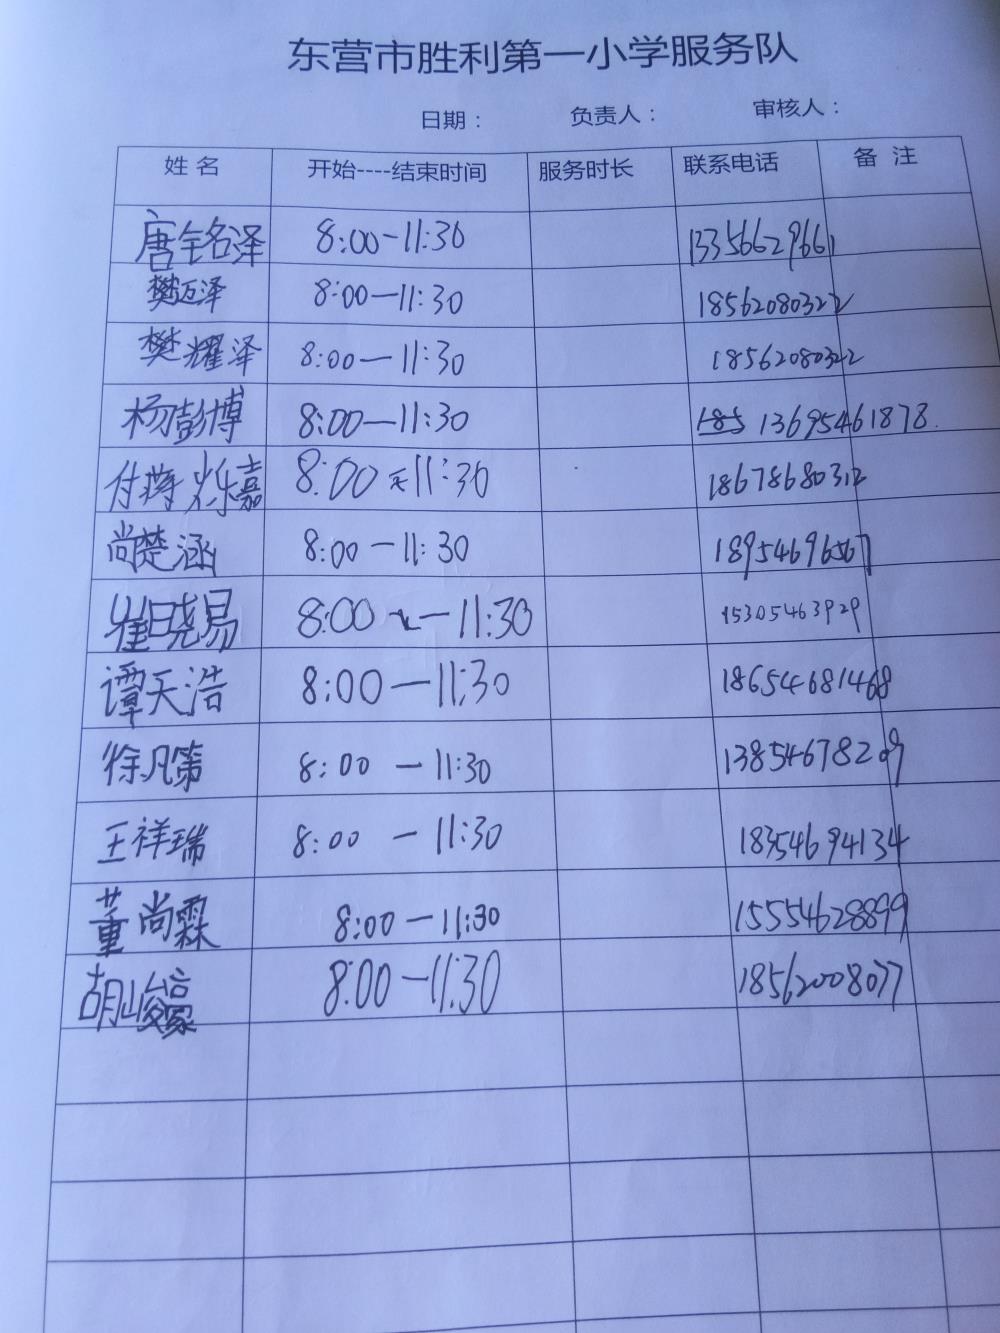 东营市胜利第一小学服务队
日期： 负责人： 审核人：
姓名 开始----结束时间 服务时长 联系电话 备注
唐铨铭泽 8:00-11:30 13356629661
樊迈泽 8:00-11:30 18562080322
樊耀泽 8:00-11:30 18562080322
杨彭博 8:00-11:30 13695461878
付蒋烁嘉 8:00 11:30 18678680312
尚楚涵 8:00-11:30 18954696567
崔晓易 8:00-11:30 15305463929
谭天浩 8:00-11:30 18654681468
徐凡第 8:00-11:30 13854678209
王祥瑞 8:00-11:30 18354694134
董尚霖 8:00-11:30 15554628899
胡峻豪 8:00-11:30 18562008077